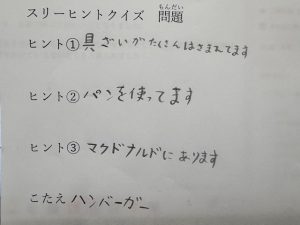 スリーヒントクイズ 問題
もんだい
ヒント① 具ざいがたくさんはさまれてます
ヒント② パンを使ってます
ヒント③ マクドナルドにあります
こたえ ハンバーガー